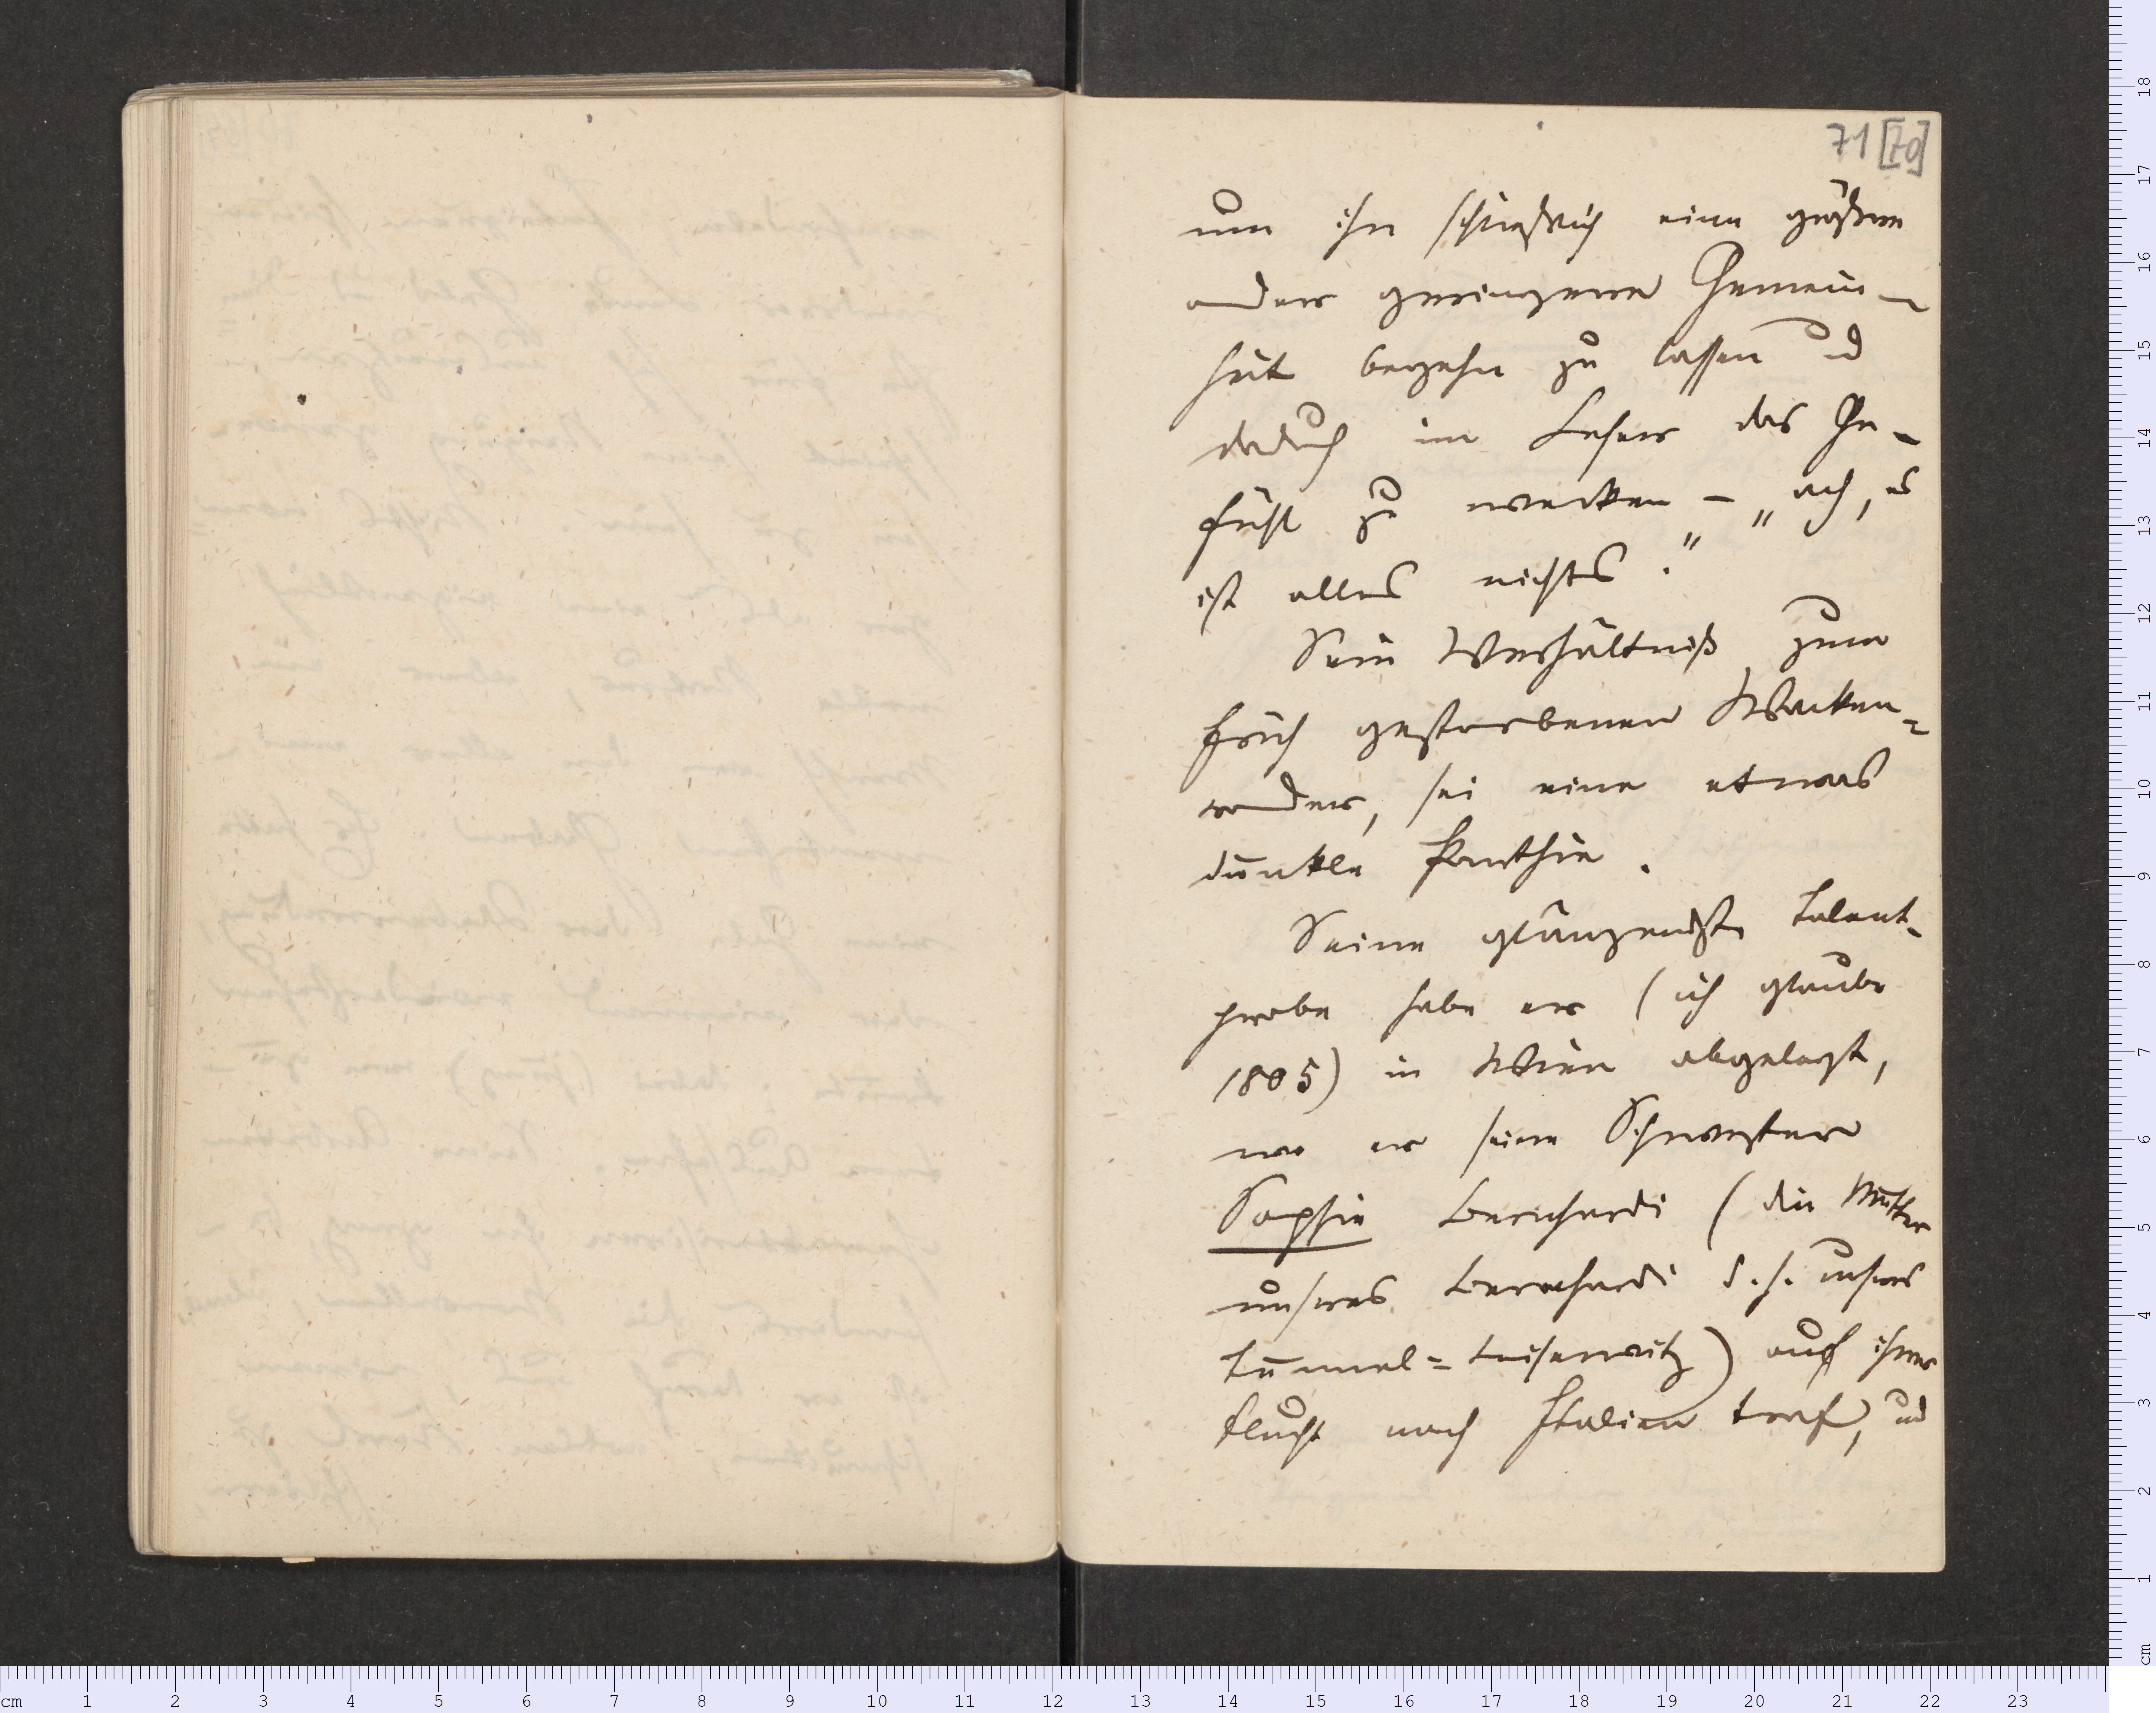 71 [70]
um ihn schließlich eine größre
oder geringere Gemein-
heit begehn zu lassen und
dadurch im Leser das Ge-
fühl zu wecken – „ach, es
ist alles nichts."
Sein Verhältniß zum
früh gestorbenen Wacken-
roder, sei eine etwas
dunkle Parthie.
Seine glänzendste Talent-
probe habe er (ich glaube
1805) in Wien abgelegt,
wo er seine Schwester
Sophie Bernhardi (die Mutter
unsres Bernhardi d. h. unsres
Tunnel=Leisewitz) auf ihrer
Flucht nach Italien traf, und